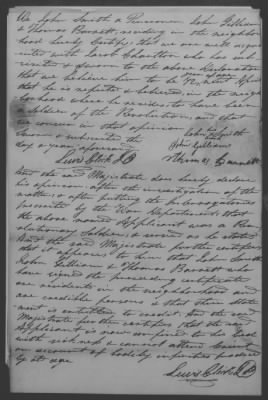 We John Smith a Pensioner John Gillham
& Thomas Barnett, residing in the neighbor
hood hereby Certify, that we are well acqua
inted with Jacob Chselton who has sub
scribed & sworn to the above declaration
that we believe him to be years of age
that he is reputed & believed, in the neigh
borhood where he resides to have been
a soldier of the Revolution, and that
we concur in that opinion
Sworn & subscribed the John Smith
day & year aforesaid John Gillham
Lewis Clark J P Thomas Barnett
And the said Magistrate does hereby declare
his opinion, after the investigation of the
matter, & after putting the interrogatories
prescribed by the War Department; that
the above named applicant was a Rev
olutionary Soldier, & served as he states
And the said Magistrate further certifies
that it appears to him that John Smith
John Gillham & Thomas Barnett who
have signed the preceding certificate
are residents in the neighborhood and
are credible persons & that their state
ment is entitled to credit. And the said
Magistrate further certifies that the said
Applicant is now confined to his Bed
with sickness & cannot attend Court
on account of bodily infirmities produced
by old age
Lewis Clark J P